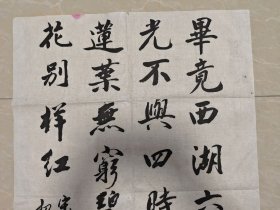 畢竟西湖六
光不與四時
蓮葉無窮碧
花别样红